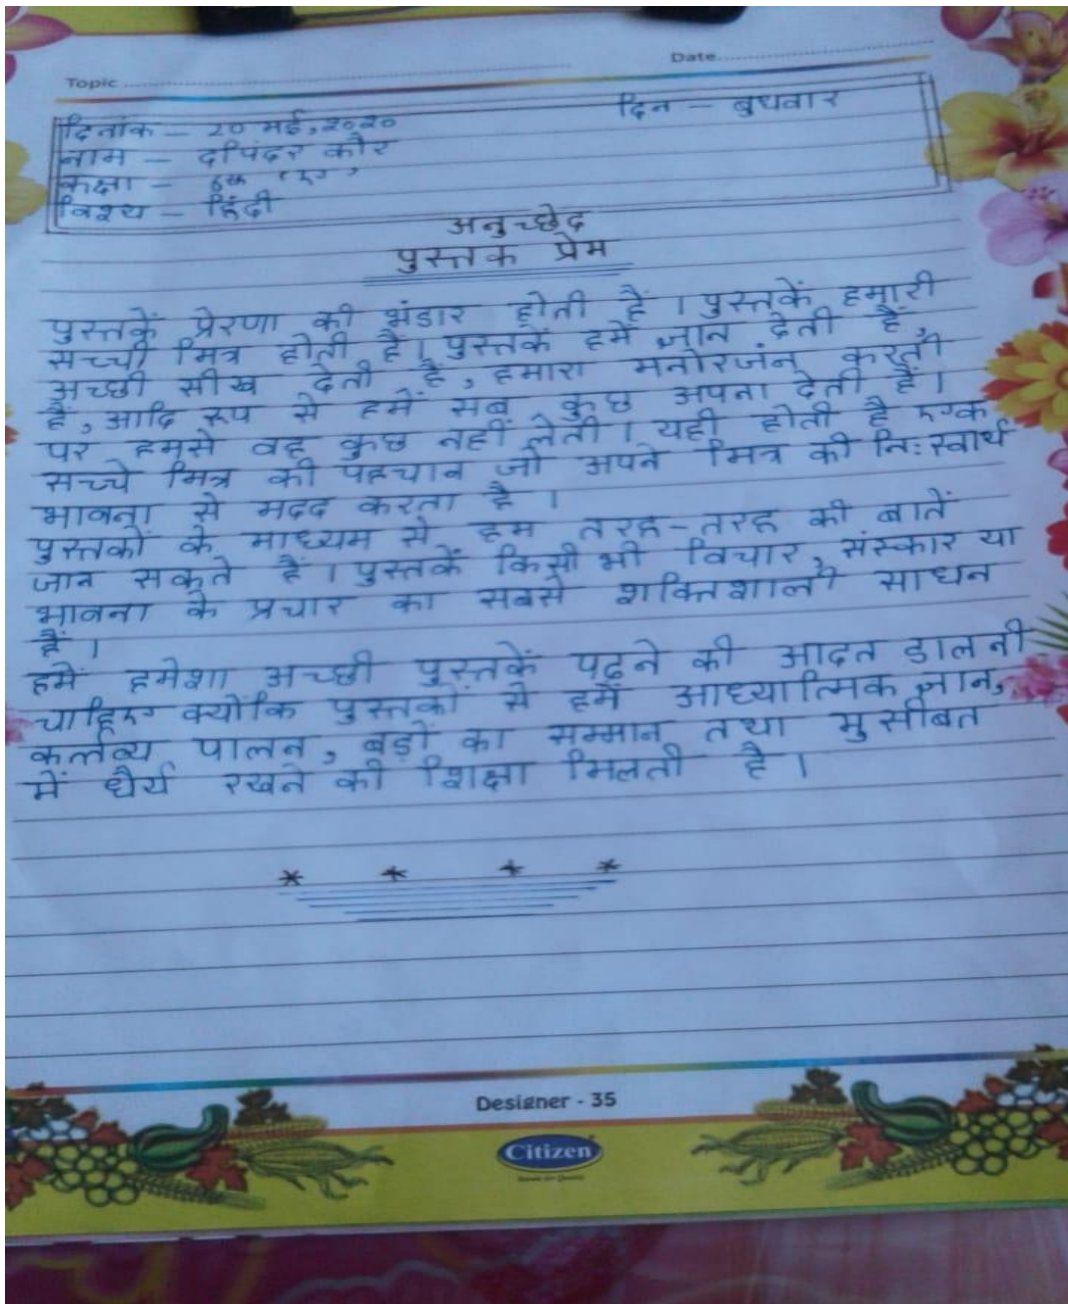 Topic
Date
दिनांक – 20 मई, २०२०
दिन – बुधवार
नाम – दपिंदर कौर
कक्षा – 6th 'ए'
विश्य – हिंदी
अनुच्छेद
पुस्तक प्रेम
पुस्तकें प्रेरणा की भंडार होती हैं । पुस्तकें हमारी
सच्ची मित्र होती हैं। पुस्तकें हमें ज्ञान देती हैं,
अच्छी सीख देती हैं, हमारा मनोरजंन करती
हैं, आदि रूप से हमें सब कुछ अपना देती हैं।
पर हमसे वह कुछ नहीं लेती । यही होती है एक
सच्चे मित्र की पहचान जो अपने मित्र की नि:स्वार्थ
भावना से मदद करता है ।
पुस्तकों के माध्यम से हम तरह-तरह की बातें
जान सकते हैं । पुस्तकें किसी भी विचार, संस्कार या
भावना के प्रचार का सबसे शक्तिशाली साधन
हैं ।
हमें हमेशा अच्छी पुस्तकें पढ़ने की आदत डालनी
चाहिए क्योंकि पुस्तकों से हमें आध्यात्मिक ज्ञान,
कर्तव्य पालन, बड़ों का सम्मान तथा मुसीबत
में धैर्य रखने की शिक्षा मिलती है ।
Designer - 35
Citizen